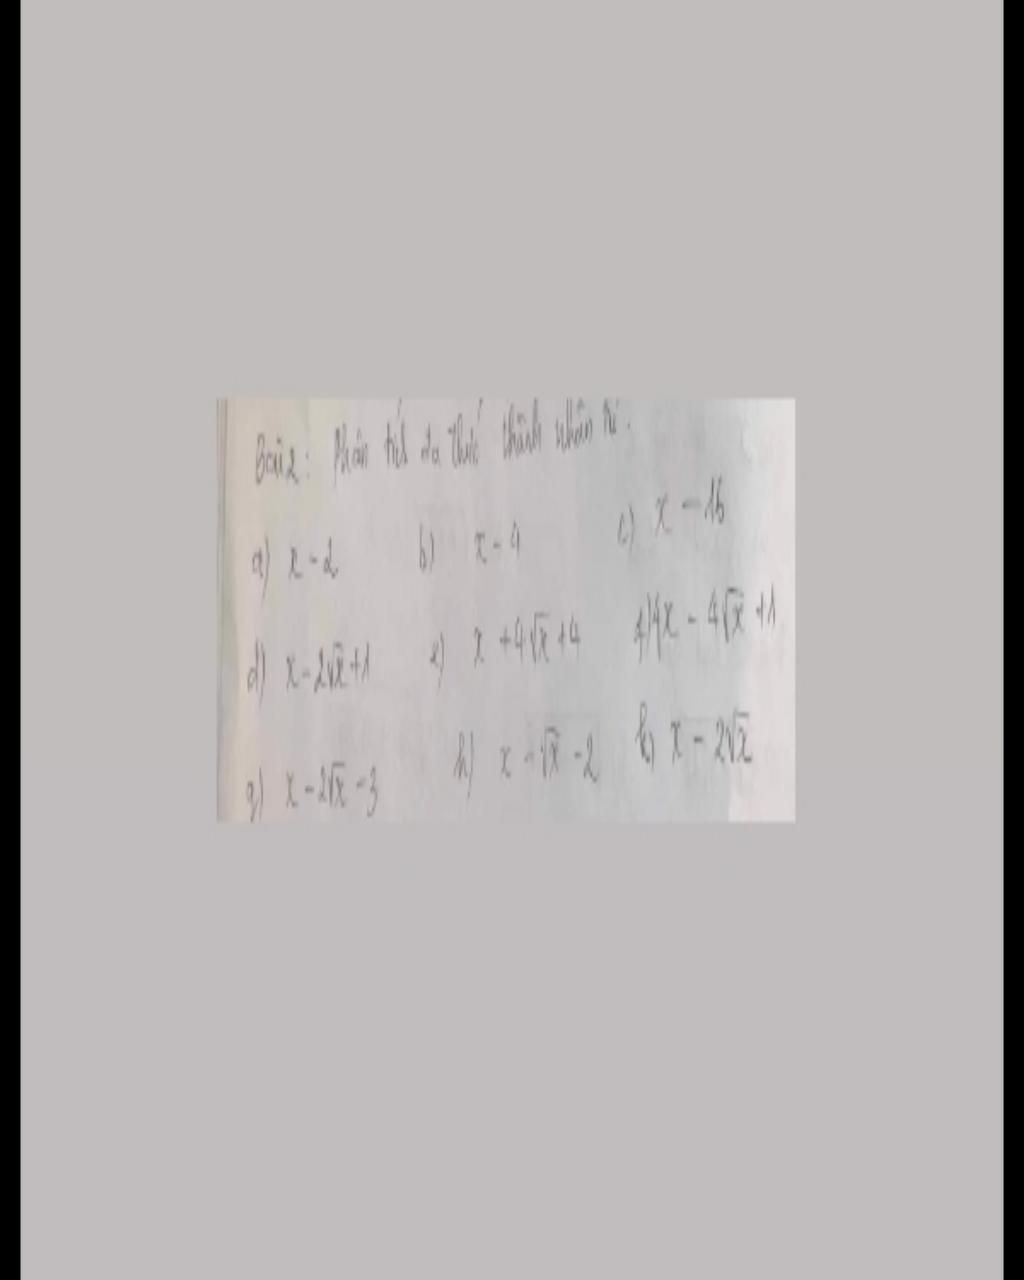 Bài 2: Phân tích đa thức thành nhân tử.
a) x - 2 b) x - 4 c) x - 16
d) x - 2√x + 1 e) x + 4√x + 4 f) 4x - 4√x + 1
g) x - 2√x - 3 h) x - √x - 2 k) x - 2√x